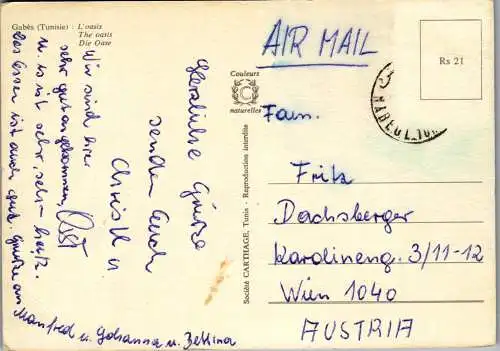 Gabès (Tunisie) : L'oasis
The oasis
Die Oase
Wir sind hier
sehr gut angekommen,
u. es ist sehr, sehr heiß.
Das Essen ist auch gut. Grüße an
Manfred u. Johanna u. Bettina
Herzliche Grüße
senden Euch
Christl u.
Couleurs
C
naturelles
Société CARTHAGE, Tunis - Reproduction interdite
AIR MAIL
Rs 21
NABEUL
Fam.
Fritz
Dachsberger
Karolineng. 3/11-12
Wien 1040
AUSTRIA